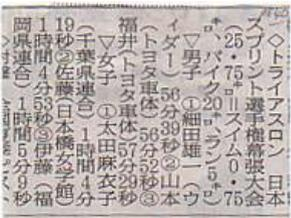 ◇トライアスロン 日本
スプリント選手権幕張大会
(25・75㌔=スイム0・75
㌔、バイク20㌔、ラン5㌔)
▽男子 ①細田雄一(ウ
イダー)56分39秒②山本
(トヨタ車体)56分52秒③
福井(トヨタ車体)57分29秒
▽女子 ①太田麻衣子
(千葉県連合)1時間4分
19秒②佐藤(日本橋女学館)
1時間4分53秒③伊藤(福
岡県連合)1時間5分9秒